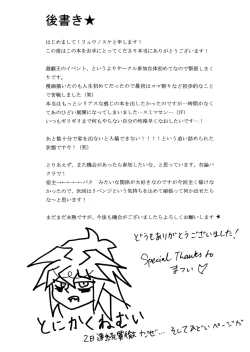 後書き★
はじめまして！リュウノスケと申します！
この度はこの本をお手にとってくださり本当にありがとうございます！
遊戯王のイベント、というよりサークル参加自体初めてなので緊張しまくりです。
漫画描いたのも人生初めてだったので最初はコマ割りなど初歩的なことで苦戦しました（笑）
本当はもっとシリアスな感じの本を出したかったのですが…時間がなくてあのひどい展開になってしまいました…スミマセン…（汗）
いつもギリギリまで何もやらない自分の性格早くなおしたいです…！
あと数十分で家を出ないと入稿できない！！！！という追い詰められた状態です今！（笑）
とりあえず、また機会があったら参加したいな、と思っています。勿論バクラで！
宿主 バクラ みたいな関係が大好きなのですが今回全く描けなかったので、次回はリベンジという気持ちを込めて頑張って何か出せたらな〜と思います！
まだまだ未熟ですが、今後も機会がございましたらよろしくお願いします★
どうもありがとうございました！
Special Thanks to
まつい♡
とにかくねむい
2日連続貫徹 だぜ… そしてあとがきページが